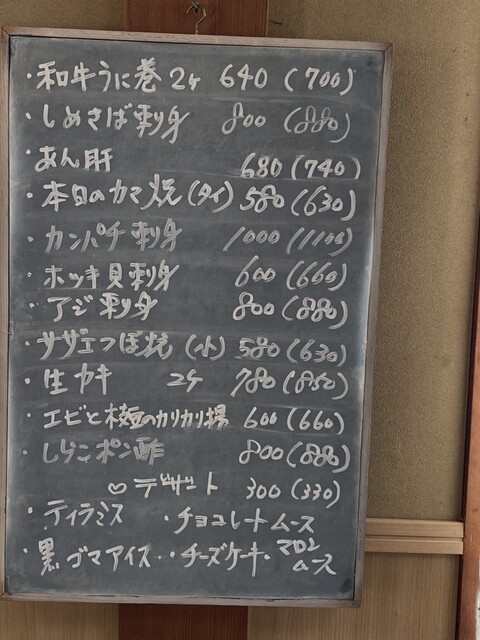 ・和牛うに巻 2ヶ 640 (700)
・しめさば刺身 800 (880)
・あん肝 680 (740)
・本日のカマ焼 (タイ) 580 (630)
・カンパチ刺身 1000 (1100)
・ホッキ貝刺身 600 (660)
・アジ刺身 800 (880)
・サザエつぼ焼 (小) 580 (630)
・生カキ 2ヶ 780 (850)
・エビと枝豆のカリカリ揚 600 (660)
・しらこポン酢 800 (880)
♡デザート 300 (330)
・ティラミス ・チョコレートムース
・黒ゴマアイス ・チーズケーキ ・マロンムース